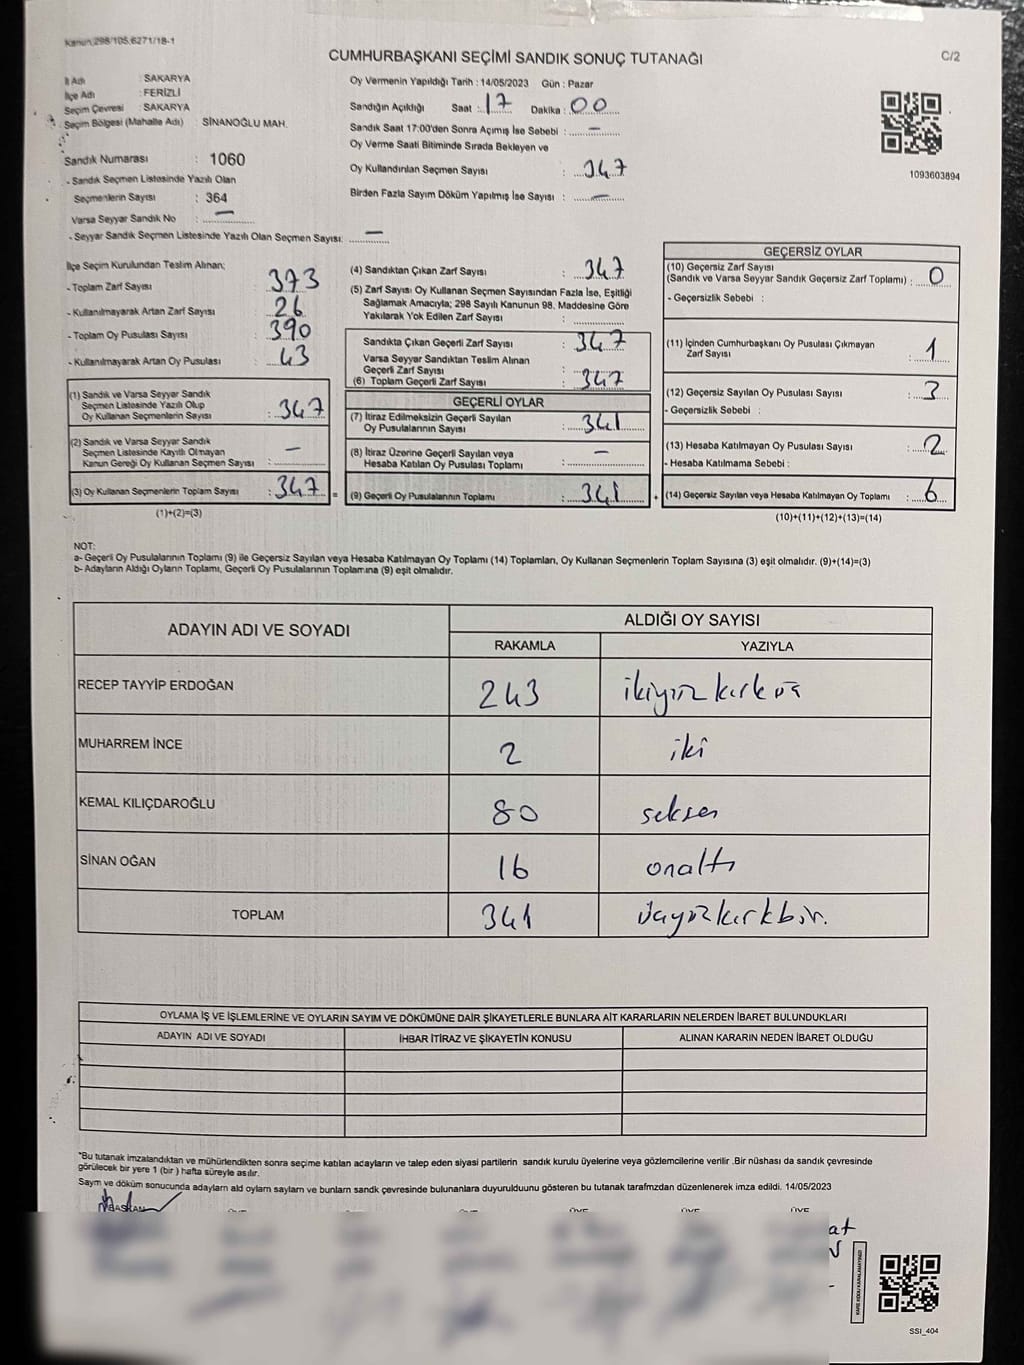 Kanun:298/105,6271/18-1
CUMHURBAŞKANI SEÇİMİ SANDIK SONUÇ TUTANAĞI
C/2
İl Adı : SAKARYA
İlçe Adı : FERİZLİ
Seçim Çevresi : SAKARYA
Seçim Bölgesi (Mahalle Adı) : SİNANOĞLU MAH.
Sandık Numarası : 1060
- Sandık Seçmen Listesinde Yazılı Olan
Seçmenlerin Sayısı : 364
Varsa Seyyar Sandık No : —
- Seyyar Sandık Seçmen Listesinde Yazılı Olan Seçmen Sayısı: —
Oy Vermenin Yapıldığı Tarih : 14/05/2023 Gün : Pazar
Sandığın Açıldığı Saat : 17 Dakika : 00
Sandık Saat 17:00'den Sonra Açımış İse Sebebi : —
Oy Verme Saati Bitiminde Sırada Bekleyen ve
Oy Kullandırılan Seçmen Sayısı : 347
Birden Fazla Sayım Döküm Yapılmış İse Sayısı : —
1093603894
İlçe Seçim Kurulundan Teslim Alınan;
- Toplam Zarf Sayısı : 373
- Kullanılmayarak Artan Zarf Sayısı : 26
- Toplam Oy Pusulası Sayısı : 390
- Kullanılmayarak Artan Oy Pusulası : 43
(1) Sandık ve Varsa Seyyar Sandık
Seçmen Listesinde Yazılı Olup
Oy Kullanan Seçmenlerin Sayısı : 347
(2) Sandık ve Varsa Seyyar Sandık
Seçmen Listesinde Kayıtlı Olmayan
Kanun Gereği Oy Kullanan Seçmen Sayısı : —
(3) Oy Kullanan Seçmenlerin Toplam Sayısı : 347 =
(1)+(2)=(3)
(4) Sandıktan Çıkan Zarf Sayısı : 347
(5) Zarf Sayısı Oy Kullanan Seçmen Sayısından Fazla İse, Eşitliği
Sağlamak Amacıyla; 298 Sayılı Kanunun 98. Maddesine Göre
Yakılarak Yok Edilen Zarf Sayısı :
Sandıkta Çıkan Geçerli Zarf Sayısı : 347
Varsa Seyyar Sandıktan Teslim Alınan
Geçerli Zarf Sayısı :
(6) Toplam Geçerli Zarf Sayısı : 347
GEÇERLİ OYLAR
(7) İtiraz Edilmeksizin Geçerli Sayılan
Oy Pusulalarının Sayısı : 341
(8) İtiraz Üzerine Geçerli Sayılan veya
Hesaba Katılan Oy Pusulası Toplamı : —
(9) Geçerli Oy Pusulalarının Toplamı : 341 +
GEÇERSİZ OYLAR
(10) Geçersiz Zarf Sayısı
(Sandık ve Varsa Seyyar Sandık Geçersiz Zarf Toplamı) : 0
- Geçersizlik Sebebi :
(11) İçinden Cumhurbaşkanı Oy Pusulası Çıkmayan
Zarf Sayısı : 1
(12) Geçersiz Sayılan Oy Pusulası Sayısı : 3
- Geçersizlik Sebebi :
(13) Hesaba Katılmayan Oy Pusulası Sayısı : 2
- Hesaba Katılmama Sebebi :
(14) Geçersiz Sayılan veya Hesaba Katılmayan Oy Toplamı : 6
(10)+(11)+(12)+(13)=(14)
NOT:
a- Geçerli Oy Pusulalarının Toplamı (9) ile Geçersiz Sayılan veya Hesaba Katılmayan Oy Toplamı (14) Toplamları, Oy Kullanan Seçmenlerin Toplam Sayısına (3) eşit olmalıdır. (9)+(14)=(3)
b- Adayların Aldığı Oyların Toplamı, Geçerli Oy Pusulalarının Toplamına (9) eşit olmalıdır.
ADAYIN ADI VE SOYADI
ALDIĞI OY SAYISI
RAKAMLA YAZIYLA
RECEP TAYYİP ERDOĞAN 243 ikiyüzkırküç
MUHARREM İNCE 2 iki
KEMAL KILIÇDAROĞLU 80 seksen
SİNAN OĞAN 16 onaltı
TOPLAM 341 üçyüzkırkbir.
OYLAMA İŞ VE İŞLEMLERİNE VE OYLARIN SAYIM VE DÖKÜMÜNE DAİR ŞİKAYETLERLE BUNLARA AİT KARARLARIN NELERDEN İBARET BULUNDUKLARI
ADAYIN ADI VE SOYADI İHBAR İTİRAZ VE ŞİKAYETİN KONUSU ALINAN KARARIN NEDEN İBARET OLDUĞU
*Bu tutanak imzalandıktan ve mühürlendikten sonra seçime katılan adayların ve talep eden siyasi partilerin sandık kurulu üyelerine veya gözlemcilerine verilir .Bir nüshası da sandık çevresinde
görülecek bir yere 1 (bir ) hafta süreyle asılır.
Sayım ve döküm sonucunda adayların ald oyların sayıları ve bunların sandk çevresinde bulunanlara duyurulduunu gösteren bu tutanak tarafmzdan düzenlenerek imza edildi. 14/05/2023
BAŞKAN ÜYE ÜYE ÜYE
at
KARE KODU KARALAMAYINIZ!
SSI_404